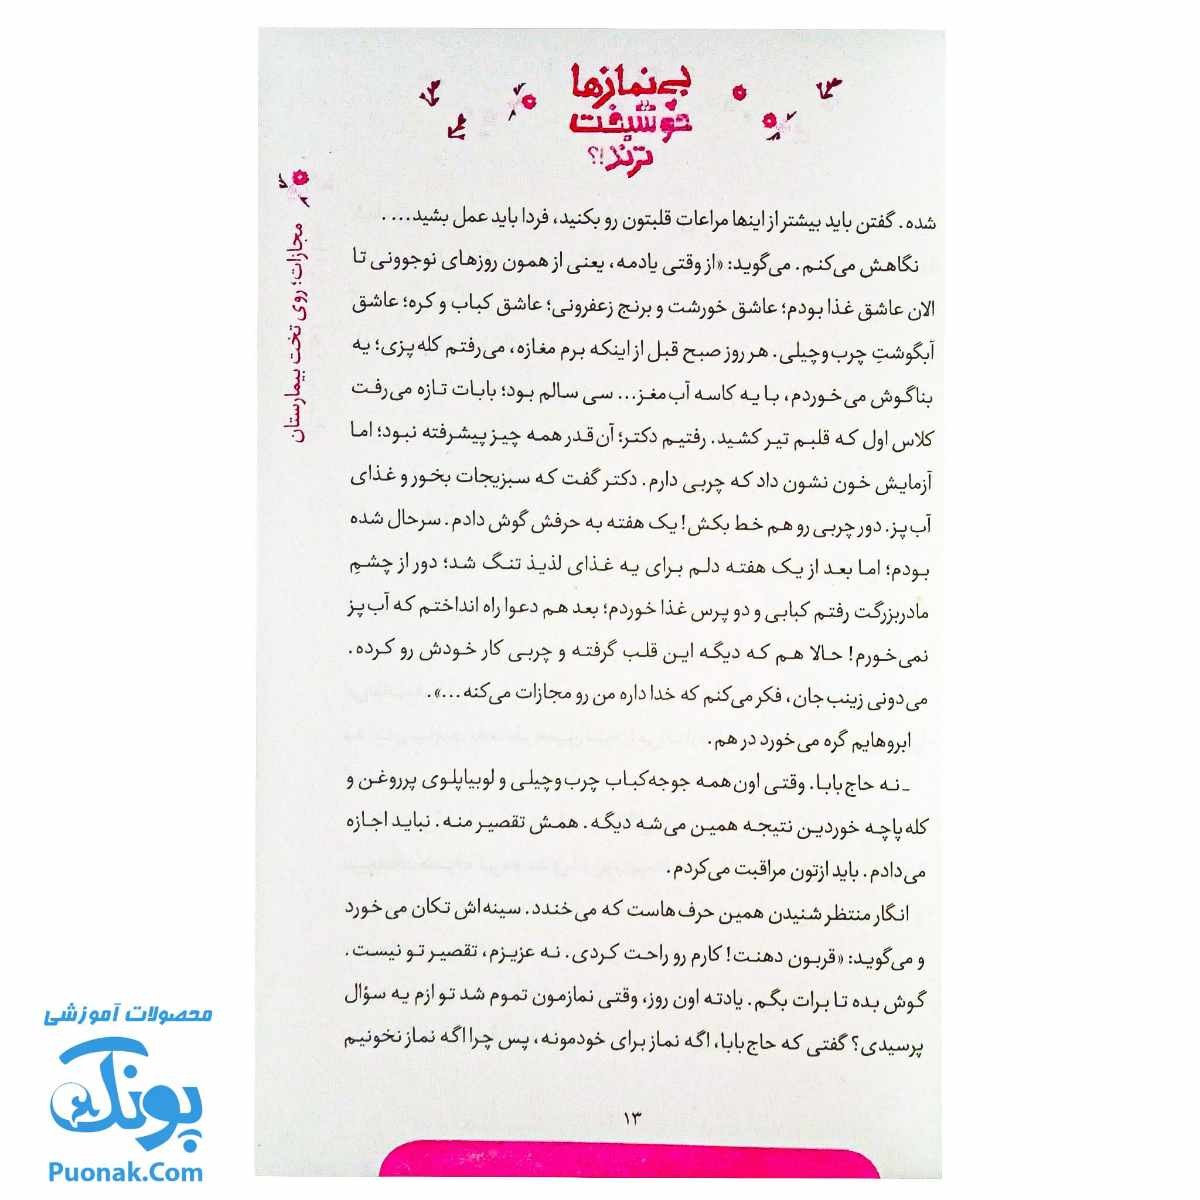 بی‌نمازها
خوشبخت
ترند!؟
مجازات؛ روی تخت بیمارستان
شده. گفتن باید بیشتر از اینها مراعات قلبتون رو بکنید، فردا باید عمل بشید....
نگاهش می‌کنم. می‌گوید: «از وقتی یادمه، یعنی از همون روزهای نوجوونی تا
الان عاشق غذا بودم؛ عاشق خورشت و برنج زعفرونی؛ عاشق کباب و کره؛ عاشق
آبگوشتِ چرب‌وچیلی. هر روز صبح قبل از اینکه برم مغازه، می‌رفتم کله‌پزی؛ یه
بناگوش می‌خوردم، با یه کاسه آب‌مغز... سی سالم بود؛ بابات تازه می‌رفت
کلاس اول که قلبم تیر کشید. رفتیم دکتر؛ آن‌قدر همه چیز پیشرفته نبود؛ اما
آزمایش خون نشون داد که چربی دارم. دکتر گفت که سبزیجات بخور و غذای
آب‌پز. دور چربی رو هم خط بکش! یک هفته به حرفش گوش دادم. سرحال شده
بودم؛ اما بعد از یک هفته دلم برای یه غذای لذیذ تنگ شد؛ دور از چشمِ
مادربزرگت رفتم کبابی و دو پرس غذا خوردم؛ بعد هم دعوا راه انداختم که آب‌پز
نمی‌خورم! حالا هم که دیگه این قلب گرفته و چربی کار خودش رو کرده.
می‌دونی زینب‌جان، فکر می‌کنم که خدا داره من رو مجازات می‌کنه...».
ابروهایم گره می‌خورد در هم.
ـ نه حاج‌بابا. وقتی اون همه جوجه‌کباب چرب‌وچیلی و لوبیاپلوی پرروغن و
کله‌پاچه خوردین نتیجه همین می‌شه دیگه. همش تقصیر منه. نباید اجازه
می‌دادم. باید ازتون مراقبت می‌کردم.
انگار منتظر شنیدن همین حرف‌هاست که می‌خندد. سینه‌اش تکان می‌خورد
و می‌گوید: «قربون دهنت! کارم رو راحت کردی. نه عزیزم، تقصیر تو نیست.
گوش بده تا برات بگم. یادته اون روز، وقتی نمازمون تموم شد تو ازم یه سؤال
پرسیدی؟ گفتی که حاج‌بابا، اگه نماز برای خودمونه، پس چرا اگه نماز نخونیم
۱۳
محصولات آموزشی
پونک
Puonak.Com